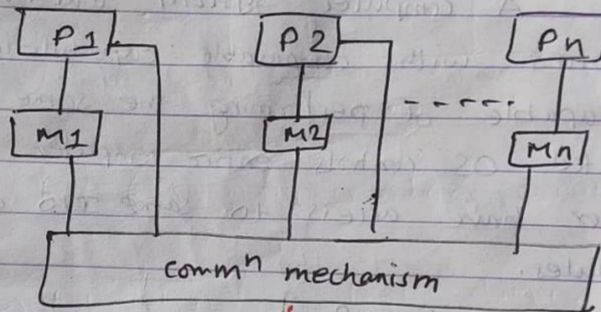 P1 P2 Pn
M1 M2 Mn
commⁿ mechanism